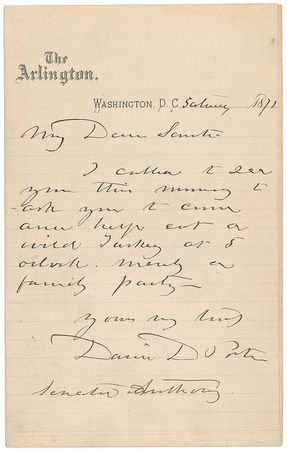 The
Arlington.
WASHINGTON, D. C. 1871
My Dear Senator
I called to see
you this morning to
ask you to come
and help eat a
wild Turkey at 5
oclock. merely a
family party—
yours very truly
David D Porter
Senator Anthony.